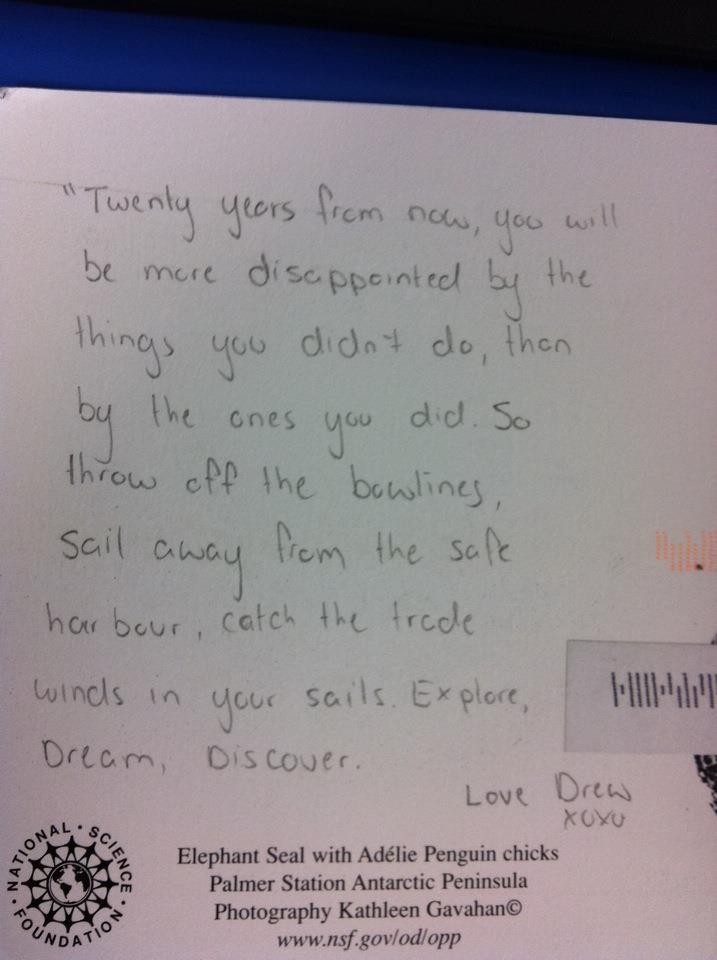 "Twenty years from now, you will
be more disappointed by the
things you didn't do, than
by the ones you did. So
throw off the bowlines,
sail away from the safe
harbour, catch the trade
winds in your sails. Explore,
Dream, Discover.
Love Drew
xoxo
NATIONAL · SCIENCE · FOUNDATION ·
Elephant Seal with Adélie Penguin chicks
Palmer Station Antarctic Peninsula
Photography Kathleen Gavahan©
www.nsf.gov/od/opp